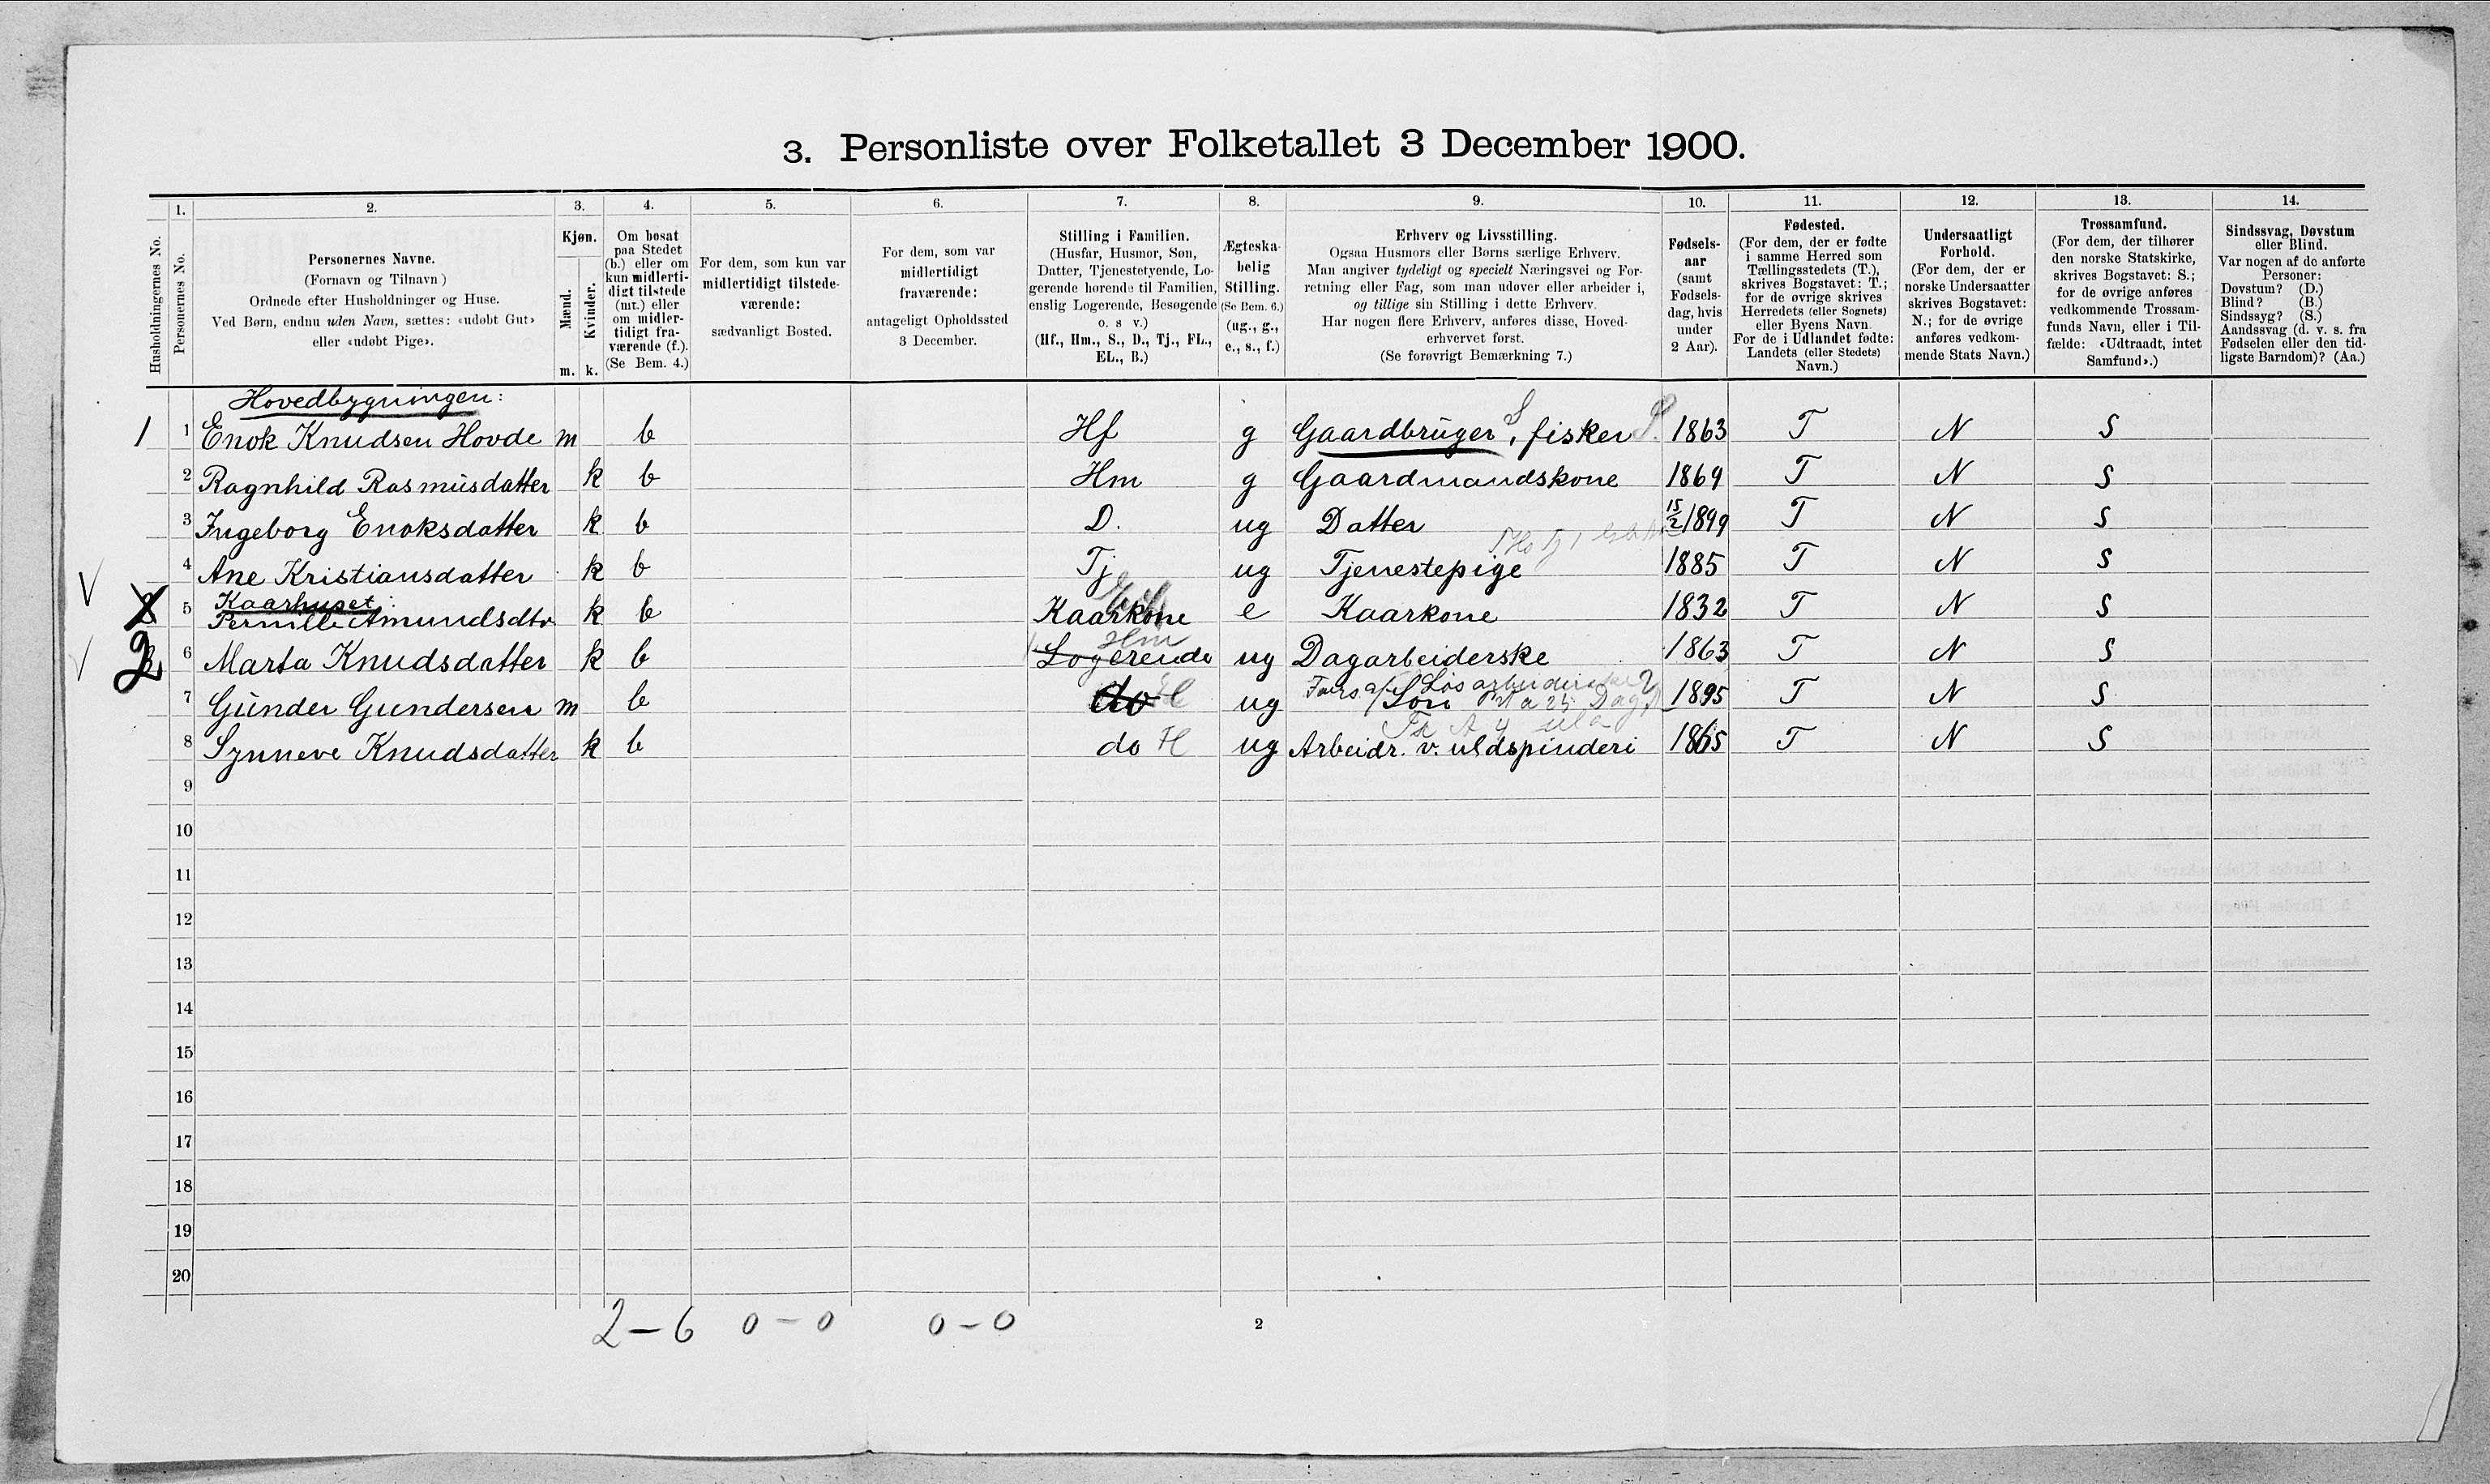 3. Personliste over Folketallet 3 December 1900.
1. 2. 3. 4. 5. 6. 7. 8. 9. 10. 11. 12. 13. 14.
Husholdningernes No.
Personernes No.
Personernes Navne.
(Fornavn og Tilnavn)
Ordnede efter Husholdninger og Huse.
Ved Børn, endnu uden Navn, sættes: «udøbt Gut»
eller «udøbt Pige».
Kjøn.
Mænd.
Kvinder.
m. k.
Om bosat
paa Stedet
(b.) eller om
kun midlerti-
digt tilstede
(mt.) eller
om midler-
tidigt fra-
værende (f.).
(Se Bem. 4.)
For dem, som kun var
midlertidigt tilstede-
værende:
sædvanligt Bosted.
For dem, som var
midlertidigt
fraværende:
antageligt Opholdssted
3 December.
Stilling i Familien.
(Husfar, Husmor, Søn,
Datter, Tjenestetyende, Lo-
gerende hørende til Familien,
enslig Logerende, Besøgende
o. s v.)
(Hf., Hm., S., D., Tj., FL.,
EL., B.)
Ægteska-
belig
Stilling.
(Se Bem. 6.)
(ug., g.,
e., s., f.)
Erhverv og Livsstilling.
Ogsaa Husmors eller Børns særlige Erhverv.
Man angiver tydeligt og specielt Næringsvei og For-
retning eller Fag, som man udøver eller arbeider i,
og tillige sin Stilling i dette Erhverv.
Har nogen flere Erhverv, anføres disse, Hoved-
erhvervet først.
(Se forøvrigt Bemærkning 7.)
Fødsels-
aar
(samt
Fødsels-
dag, hvis
under
2 Aar).
Fødested.
(For dem, der er fødte
i samme Herred som
Tællingsstedets (T.),
skrives Bogstavet: T.;
for de øvrige skrives
Herredets (eller Sognets)
eller Byens Navn.
For de i Udlandet fødte:
Landets (eller Stedets)
Navn.)
Undersaatligt
Forhold.
(For dem, der er
norske Undersaatter
skrives Bogstavet:
N.; for de øvrige
anføres vedkom-
mende Stats Navn.)
Trossamfund.
(For dem, der tilhører
den norske Statskirke,
skrives Bogstavet: S.;
for de øvrige anføres
vedkommende Trossam-
funds Navn, eller i Til-
fælde: «Udtraadt, intet
Samfund».)
Sindssvag, Døvstum
eller Blind.
Var nogen af de anførte
Personer:
Døvstum? (D.)
Blind? (B.)
Sindssyg? (S.)
Aandssvag (d. v. s. fra
Fødselen eller den tid-
ligste Barndom)? (Aa.)
Hovedbygningen:
1 1 Enok Knudsen Hovde m b Hf g Gaardbruger S, fisker S. 1863 T N S
2 Ragnhild Rasmusdatter k b Hm g Gaardmandskone 1869 T N S
3 Ingeborg Enoksdatter k b D. ug Datter 15/2 1899 T N S
4 Ane Kristiansdatter k b Tj ug Tjenestepige 1885 T N S
Kaarhuset:
5 Pernille Amundsdtr k b Kaarkone e Kaarkone 1832 T N S
Hm
2 6 Marta Knudsdatter k b Logerende ug Dagarbeiderske 1863 T N S
Løsarbeiderske
7 Gunder Gundersen m b do ug Søn 1895 T N S
8 Synneve Knudsdatter k b do ug Arbeidr. v. uldspinderi 1865 T N S
9
10
11
12
13
14
15
16
17
18
19
20
2 – 6 0 – 0 0 – 0
2